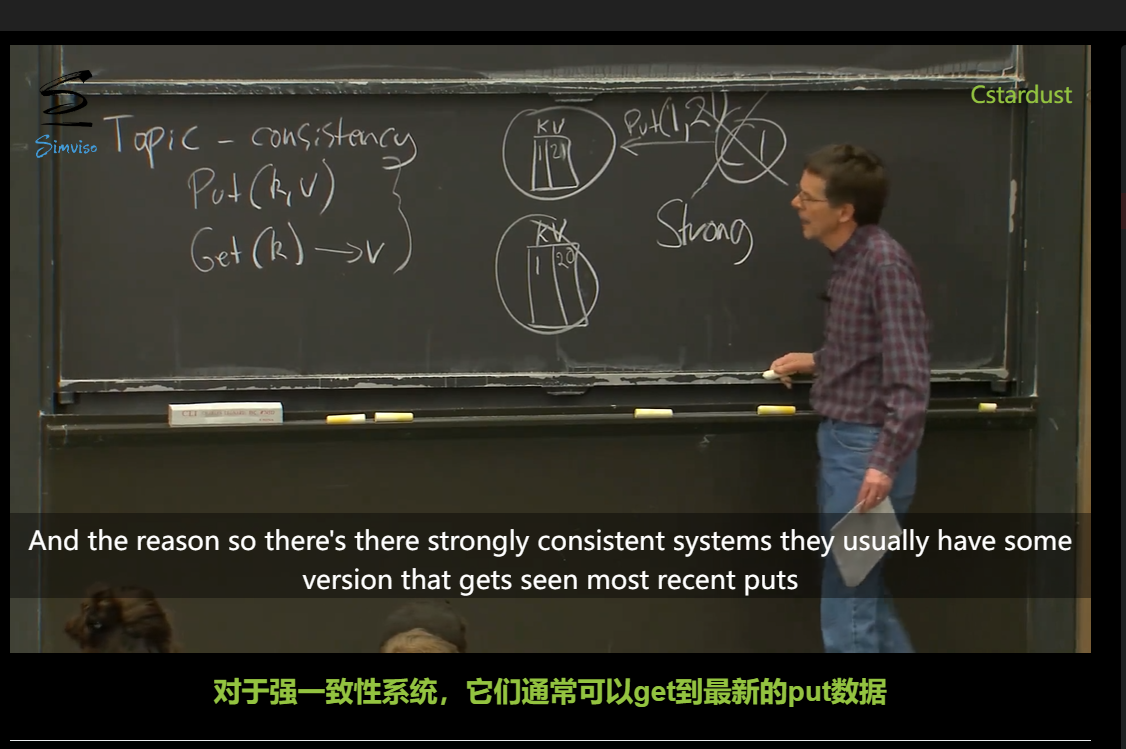 Simviso
Cstardust
Topic - consistency
Put(k,v)
Get(k) → v
K V
1 21
Put(1,21)
C1
Strong
K V
1 20
And the reason so there's there strongly consistent systems they usually have some
version that gets seen most recent puts
对于强一致性系统，它们通常可以get到最新的put数据